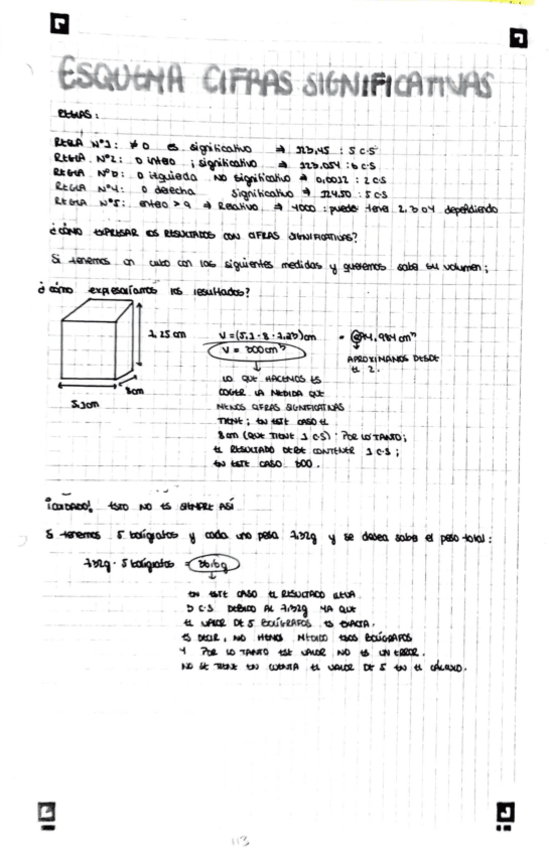 ESQUEMA CIFRAS SIGNIFICATIVAS
REGLAS:
REGLA Nº1: ≠ 0 es significativo ⇒ 123,45 : 5 C·S
REGLA Nº2: 0 interno ¡ significativo ⇒ 123,054 : 6 C·S
REGLA Nº3: 0 izquierda NO significativo ⇒ 0,0012 : 2 C·S
REGLA Nº4: 0 derecha significativo ⇒ 124,50 : 5 C·S
REGLA Nº5: entero > 9 ⇒ Relativo ⇒ 4000 : puede tener 2, 3 o 4 dependiendo
¿CÓMO EXPRESAR LOS RESULTADOS CON CIFRAS SIGNIFICATIVAS?
Si tenemos un cubo con las siguientes medidas y queremos saber su volumen;
¿cómo expresaríamos los resultados?
7,25 cm
8cm
5,1cm
V = (5,1 · 8 · 7,25) cm =
V = 300 cm³
APROXIMAMOS DESDE
EL 2.
LO QUE HACEMOS ES
COGER LA MEDIDA QUE
MENOS CIFRAS SIGNIFICATIVAS
TIENE; EN ESTE CASO EL
8cm (QUE TIENE 1 C·S) : POR LO TANTO;
EL RESULTADO DEBE CONTENER 1 C·S ;
EN ESTE CASO 300.
¡CUIDADO! ESTO NO ES SIEMPRE ASÍ
Si tenemos 5 bolígrafos y cada uno pesa 7,32g y se desea saber el peso total:
7,32g · 5 bolígrafos = 36,6g
EN ESTE CASO EL RESULTADO LLEVA
3 C·S DEBIDO AL 7,32g YA QUE
EL VALOR DE 5 BOLÍGRAFOS ES EXACTA.
ES DECIR, NO HEMOS MEDIDO ESOS BOLÍGRAFOS
Y POR LO TANTO ESE VALOR NO ES UN ERROR.
NO SE TIENE EN CUENTA EL VALOR DE 5 EN EL CÁLCULO.
113